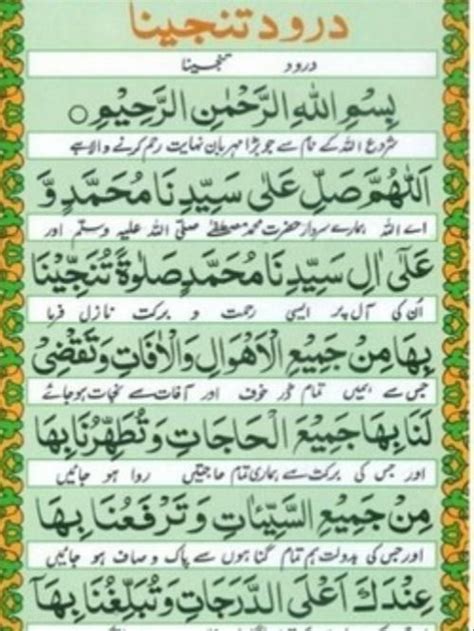 درود تنجینا
درود تنجینا
بِسْمِ اللهِ الرَّحْمٰنِ الرَّحِيْمِ
شروع اللہ کے نام سے جو بڑا مہربان نہایت رحم کرنے والا ہے
اَللّٰهُمَّ صَلِّ عَلٰى سَيِّدِنَا مُحَمَّدٍ وَّ
اے اللہ ہمارے سردار حضرت محمد مصطفےٰ صلی اللہ علیہ وسلم اور
عَلٰٓى اٰلِ سَيِّدِنَا مُحَمَّدٍ صَلٰوةً تُنَجِّيْنَا
اُن کی آل پر ایسی رحمت و برکت نازل فرما
بِهَا مِنْ جَمِيْعِ الْاَهْوَالِ وَالْاٰفَاتِ وَتَقْضِيْ
جس سے ہمیں تمام ڈر خوف اور آفات سے نجات ہو جائے
لَنَا بِهَا جَمِيْعَ الْحَاجَاتِ وَتُطَهِّرُنَا بِهَا
اور جس کی برکت سے ہماری تمام حاجتیں روا ہو جائیں
مِنْ جَمِيْعِ السَّيِّاٰتِ وَتَرْفَعُنَا بِهَا
اور جس کی بدولت ہم تمام گناہوں سے پاک و صاف ہو جائیں
عِنْدَكَ اَعْلَى الدَّرَجَاتِ وَتُبَلِّغُنَا بِهَآ